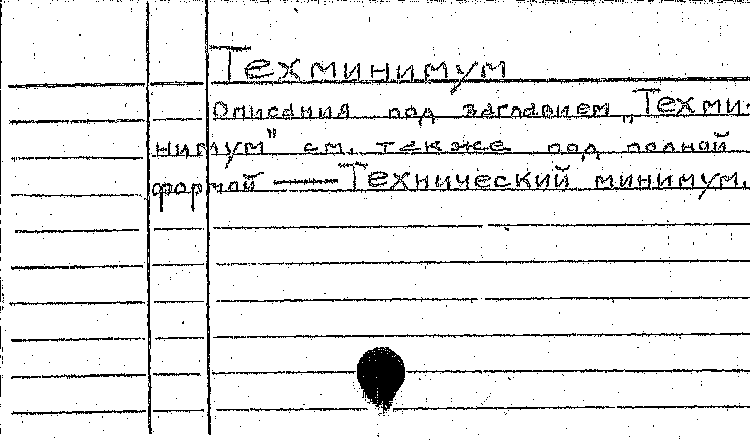 Техминимум
Описания под заглавием „Техми-
нимум" см. также под полной
формой — Технический минимум.